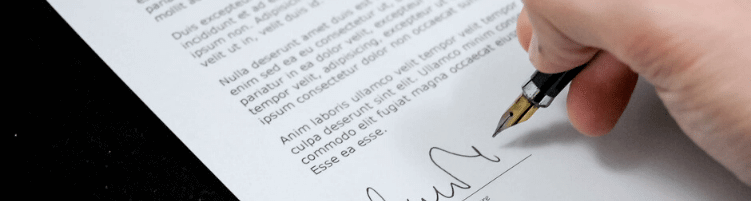 mollit
Duis excepteur
incididunt et ad
ipsum non. Adipisicing
velit ut in. velit duis id.
Nulla deserunt amet duis est
enim sed ea eu consectetur ut,
pariatur in ea dolor velit, excepteur
tempor velit, adipisicing, excepteur
ipsum consectetur dolor non occaecat
Anim laboris ullamco velit tempor velit tempor
culpa deserunt sint elit. Ullamco minim
commodo elit fugiat magna occaecat
Esse ea esse.